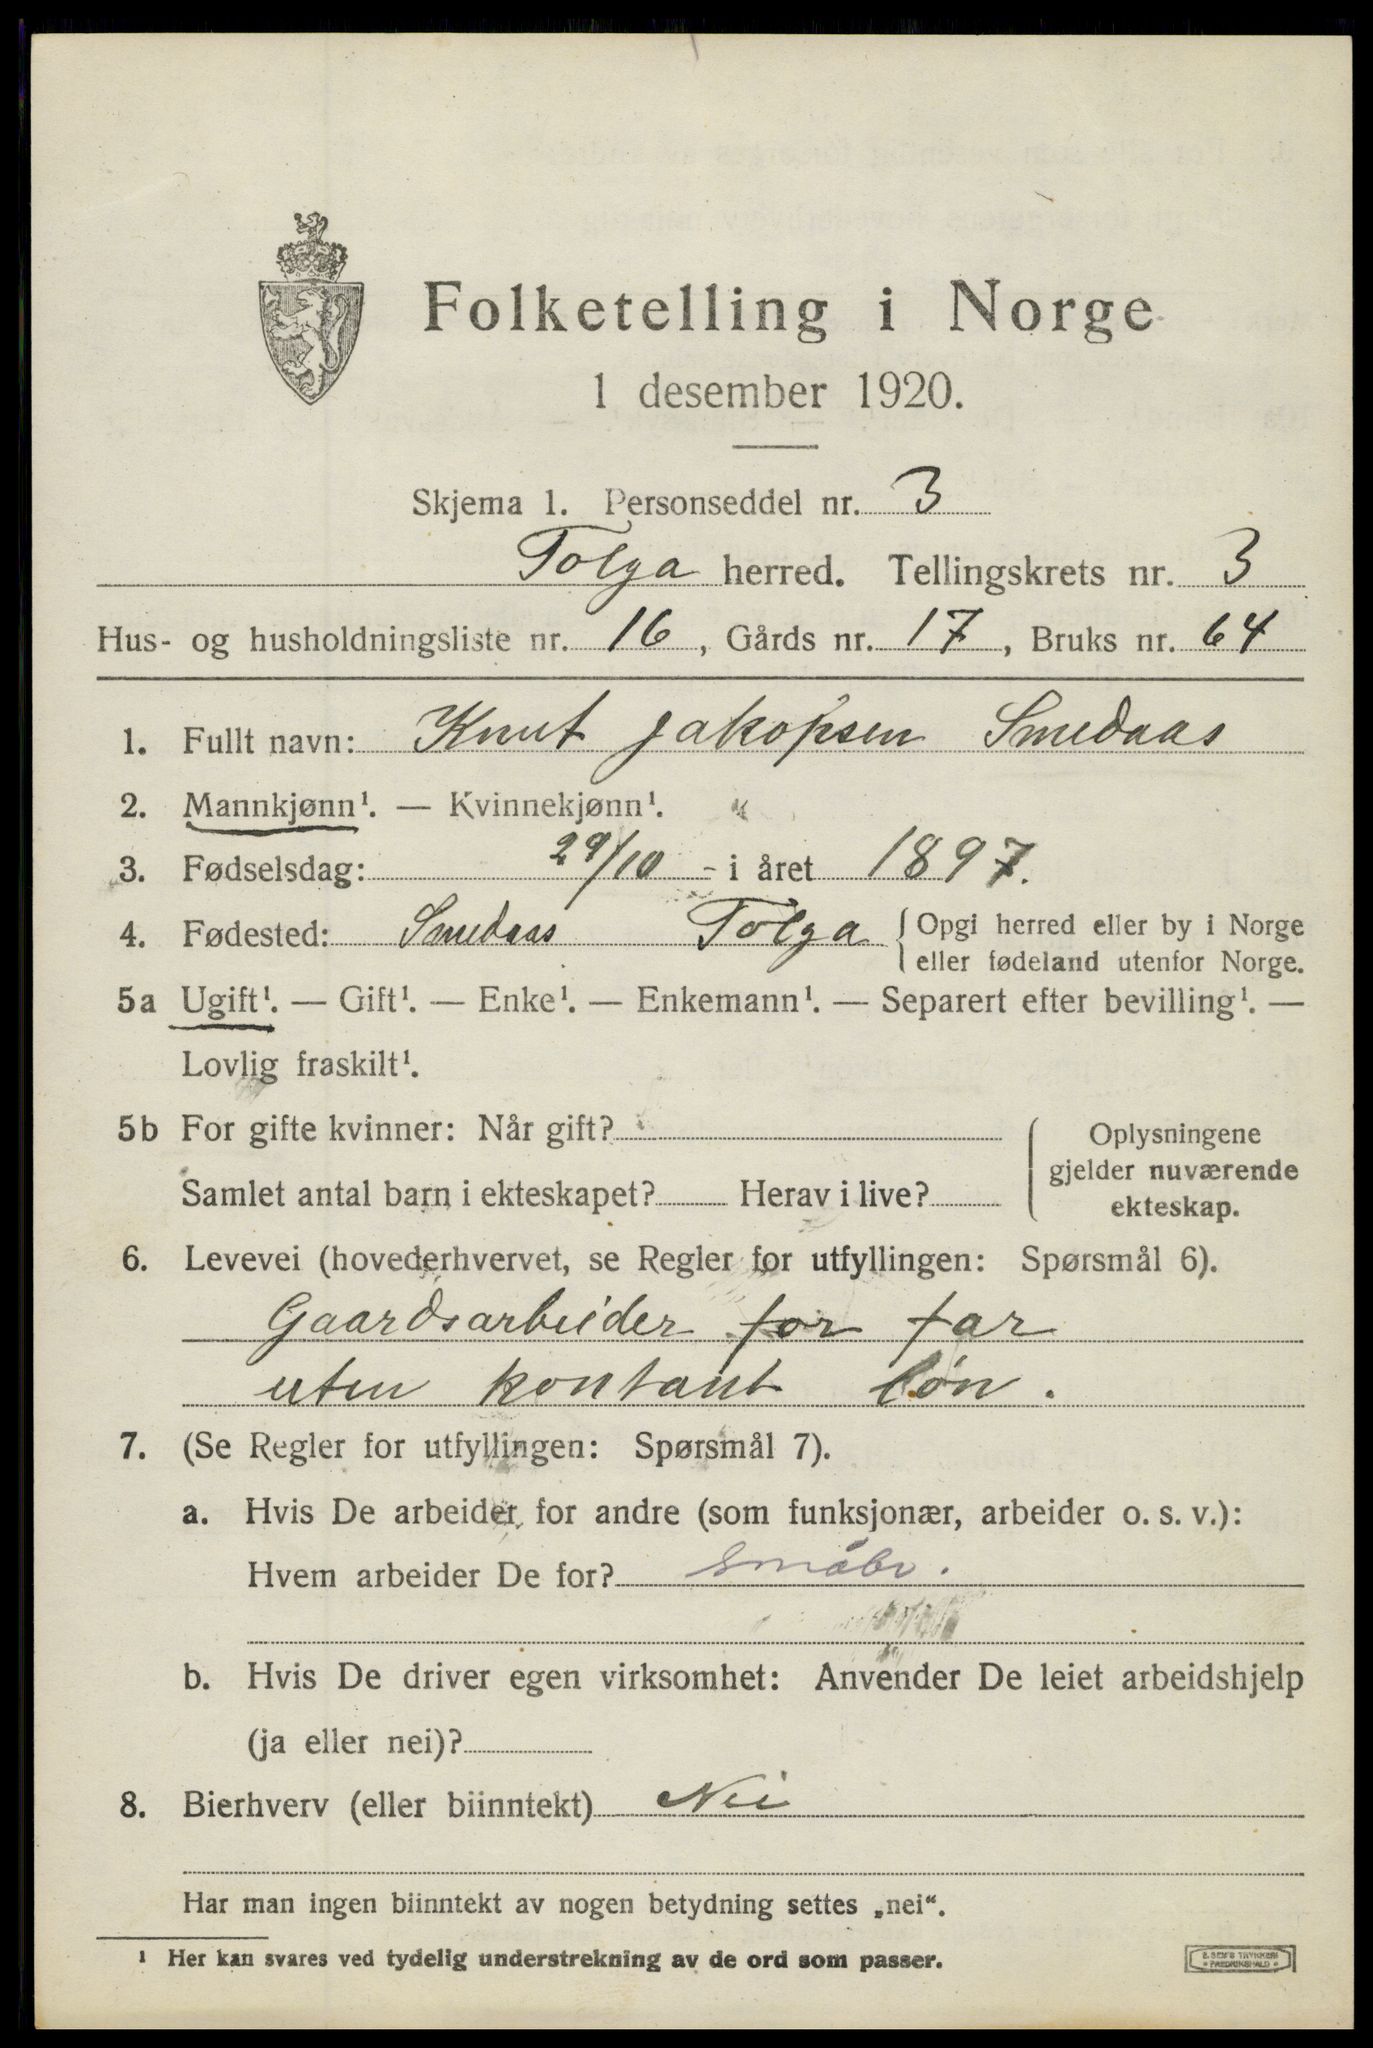 Folketelling i Norge
1 desember 1920.
Skjema 1. Personseddel nr. 3
Tolga herred. Tellingskrets nr. 3
Hus- og husholdningsliste nr. 16, Gårds nr. 17, Bruks nr. 64
1. Fullt navn: Knut Jakopsen Smedaas
2. Mannkjønn¹. — Kvinnekjønn¹.
3. Fødselsdag: 29/10 - i året 1897.
4. Fødested: Smedaas Tolga { Opgi herred eller by i Norge
eller fødeland utenfor Norge.
5a Ugift¹. — Gift¹. — Enke¹. — Enkemann¹. — Separert efter bevilling¹. —
Lovlig fraskilt¹.
5b For gifte kvinner: Når gift?
Samlet antal barn i ekteskapet? Herav i live?
Oplysningene
gjelder nuværende
ekteskap.
6. Levevei (hovederhvervet, se Regler for utfyllingen: Spørsmål 6).
Gaardsarbeider for far
uten kontant løn.
7. (Se Regler for utfyllingen: Spørsmål 7).
a. Hvis De arbeider for andre (som funksjonær, arbeider o. s. v.):
Hvem arbeider De for? småbr.
b. Hvis De driver egen virksomhet: Anvender De leiet arbeidshjelp
(ja eller nei)?
8. Bierhverv (eller biinntekt) Nei
Har man ingen biinntekt av nogen betydning settes „nei“.
¹ Her kan svares ved tydelig understrekning av de ord som passer.
E. SEM'S TRYKKERI
FREDRIKSHALD